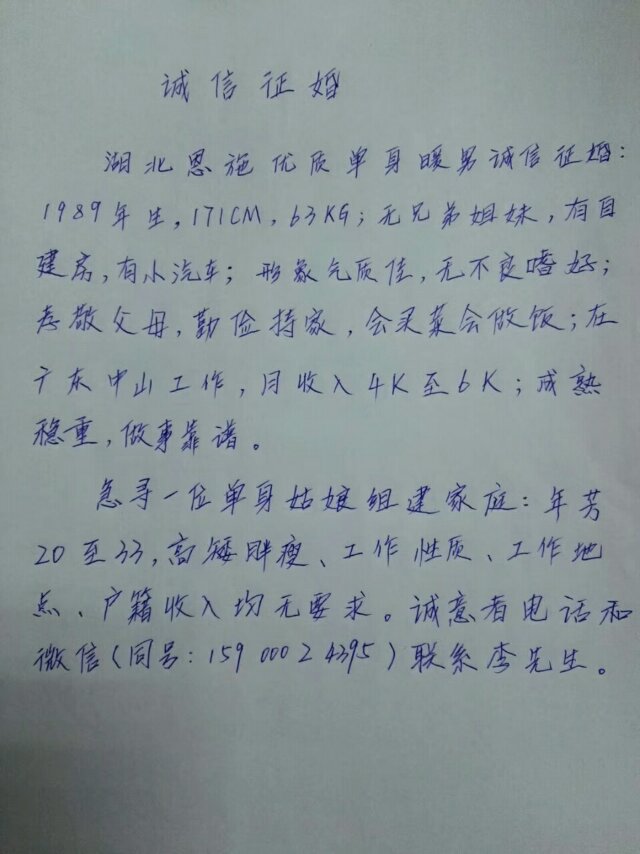 诚信征婚
湖北恩施优质单身暖男诚信征婚：
1989年生，171CM，63KG；无兄弟姐妹，有自
建房，有小汽车；形象气质佳，无不良嗜好；
孝敬父母，勤俭持家，会买菜会做饭；在
广东中山工作，月收入4K至6K；成熟
稳重，做事靠谱。
急寻一位单身姑娘组建家庭：年芳
20至33，高矮胖瘦、工作性质、工作地
点、户籍收入均无要求。诚意者电话和
微信（同号：159 0002 4395）联系李先生。